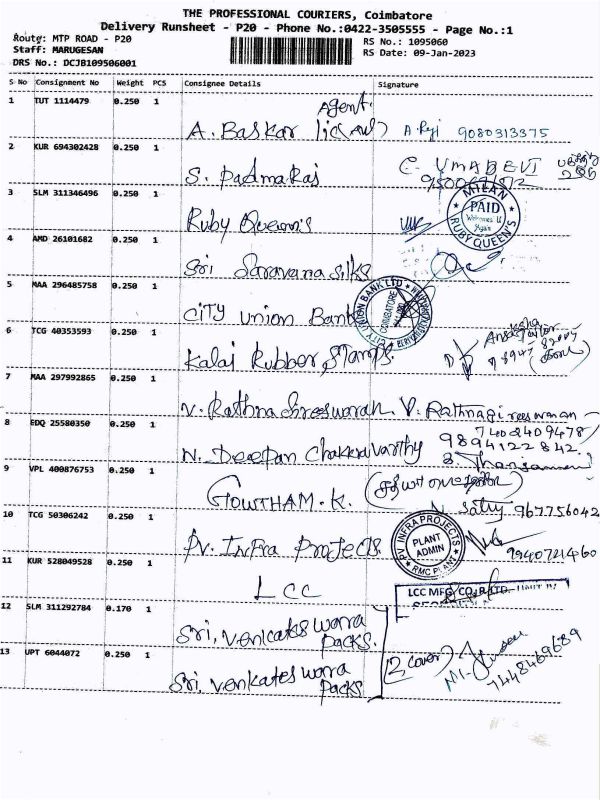 THE PROFESSIONAL COURIERS, Coimbatore
Delivery Runsheet - P20 - Phone No.:0422-3505555 - Page No.:1
Route: MTP ROAD - P20
RS No.: 1095060
Staff: MARUGESAN
RS Date: 09-Jan-2023
DRS No.: DCJB109506001
S No Consignment No Weight PCS Consignee Details Signature
1 TUT 1114479 0.250 1 Agent.
A. Baskar lic(Aul) 9080313375
2 KUR 694302428 0.250 1
S. Padmaraj C. UMADEVI
3 SLM 311346496 0.250 1
Ruby Queen's MILAN PAID Welcomes U Again RUBY QUEEN'S
4 AMD 26101682 0.250 1
Sri Saravana Silks
5 MAA 296485758 0.250 1
City Union Bank CITY UNION BANK LTD COIMBATORE
6 TCG 40353593 0.250 1
Kalai Rubber Stamps
7 MAA 297992865 0.250 1
V. Rathna Shreeswaran
8 EDQ 25580350 0.250 1 7402409478
N. Deepan Chakkravarthy 9894122842
9 VPL 400876753 0.250 1
GOWTHAM.K. 967756042
10 TCG 50306242 0.250 1
PV. Infra Projects PV INFRA PROJECTS PLANT ADMIN RMC PLANT 9940721460
11 KUR 528049528 0.250 1
LCC LCC MFG CO.(P) LTD.
12 SLM 311292784 0.170 1
Sri. Venkateswara
Packs.
13 UPT 6044072 0.250 1 (2 cover)
Sri. Venkateswara 7448469689
Packs